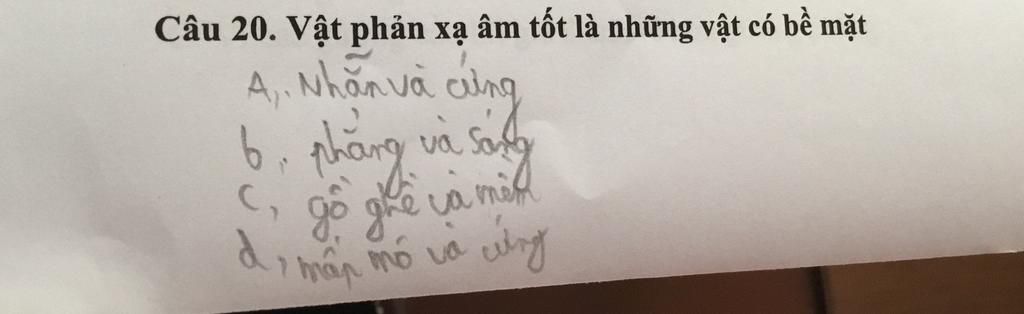 Câu 20. Vật phản xạ âm tốt là những vật có bề mặt
A,. Nhẵn và cứng
b, phẳng và sáng
C, gồ ghề và mềm
d, mấp mô và cứng